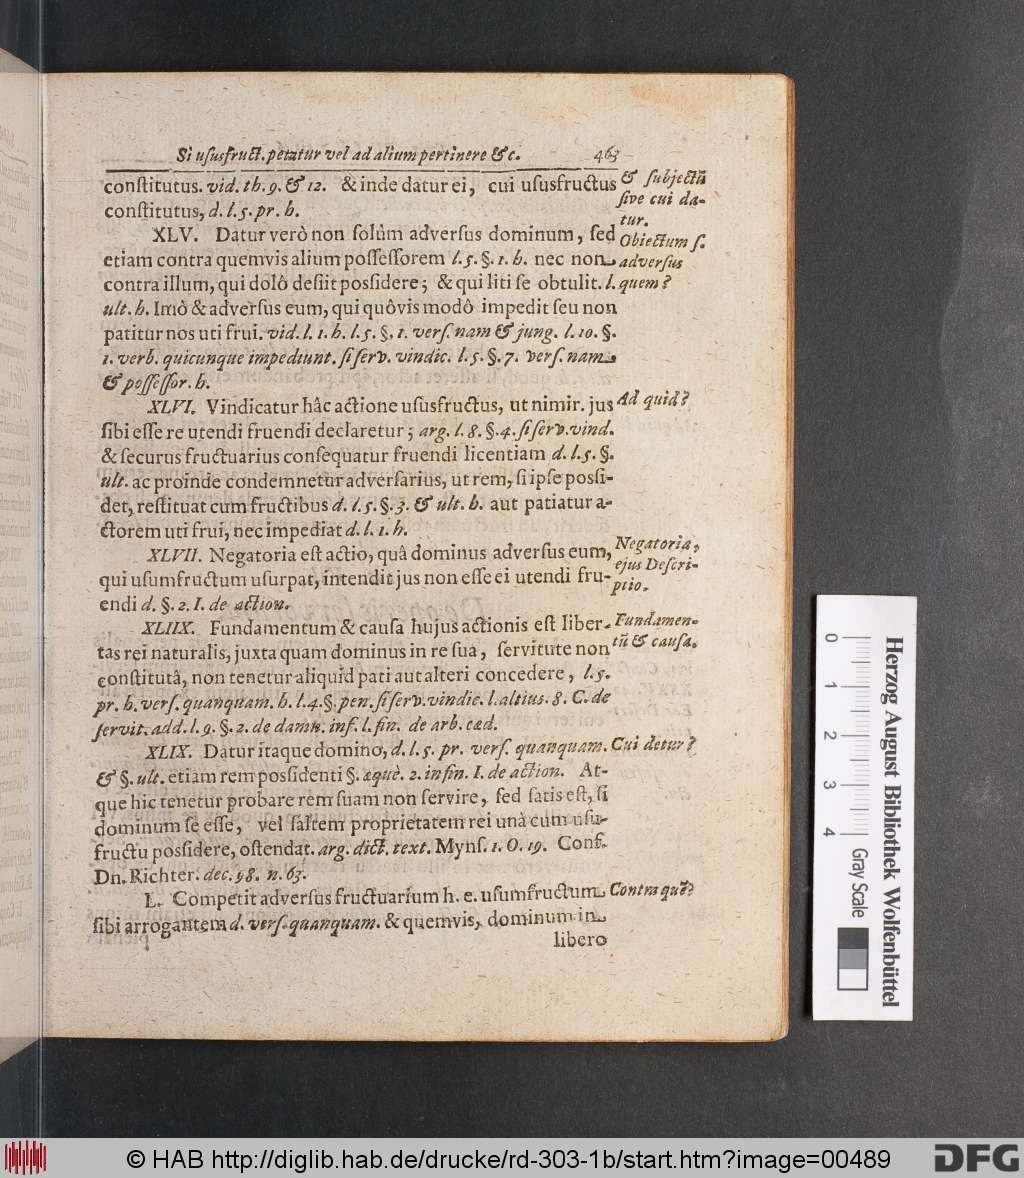 Si ususfruct. petatur vel ad alium pertinere &c. 463
constitutus. vid. th. 9. & 12. & inde datur ei, cui ususfructus
constitutus, d. l. 5. pr. h.
& subjectũ
sive cui da-
tur.
XLV. Datur verò non solùm adversus dominum, sed
etiam contra quemvis alium possessorem l. 5. §. 1. h. nec non
contra illum, qui dolô desiit possidere; & qui liti se obtulit. l.
ult. h. Imò & adversus eum, qui quôvis modô impedit seu non
patitur nos uti frui. vid. l. 1. h. l. 5. §. 1. vers. nam & jung. l. 10. §.
1. verb. quicunque impediunt. si serv. vindic. l. 5. §. 7. vers. nam
& possessor. h.
Obiectum s.
adversus
quem?
XLVI. Vindicatur hâc actione ususfructus, ut nimir. jus
sibi esse re utendi fruendi declaretur; arg. l. 8. §. 4. si serv. vind.
& securus fructuarius consequatur fruendi licentiam d. l. 5. §.
ult. ac proinde condemnetur adversarius, ut rem, si ipse possi-
det, restituat cum fructibus d. l. 5. §. 3. & ult. h. aut patiatur a-
ctorem uti frui, nec impediat d. l. 1. h.
Ad quid?
XLVII. Negatoria est actio, quâ dominus adversus eum,
qui usumfructum usurpat, intendit jus non esse ei utendi fru-
endi d. §. 2. I. de action.
Negatoria,
ejus Descri-
ptio.
XLIIX. Fundamentum & causa hujus actionis est liber-
tas rei naturalis, juxta quam dominus in re sua, servitute non
constitutâ, non tenetur aliquid pati aut alteri concedere, l. 5.
pr. h. vers. quanquam. h. l. 4. §. pen. si serv. vindic. l. altius. 8. C. de
servit. add. l. 9. §. 2. de damn. inf. l. fin. de arb. cæd.
Fundamen-
tũ & causa.
XLIX. Datur itaque domino, d. l. 5. pr. vers. quanquam.
& §. ult. etiam rem possidenti §. æquè. 2. in fin. I. de action. At-
que hic tenetur probare rem suam non servire, sed satis est, si
dominum se esse, vel saltem proprietatem rei unà cum usu-
fructu possidere, ostendat. arg. dict. text. Myns. 1. O. 19. Conf.
Dn. Richter. dec. 98. n. 63.
Cui detur?
L. Competit adversus fructuarium h. e. usumfructum
sibi arrogantem d. vers. quanquam. & quemvis, dominum in
libero
Contra quẽ?
0 1 2 3 4
Gray Scale
Herzog August Bibliothek Wolfenbüttel
© HAB http://diglib.hab.de/drucke/rd-303-1b/start.htm?image=00489
DFG